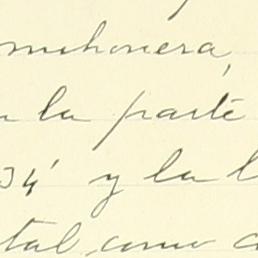 muhonera,
la parte
34' y la l
tal como